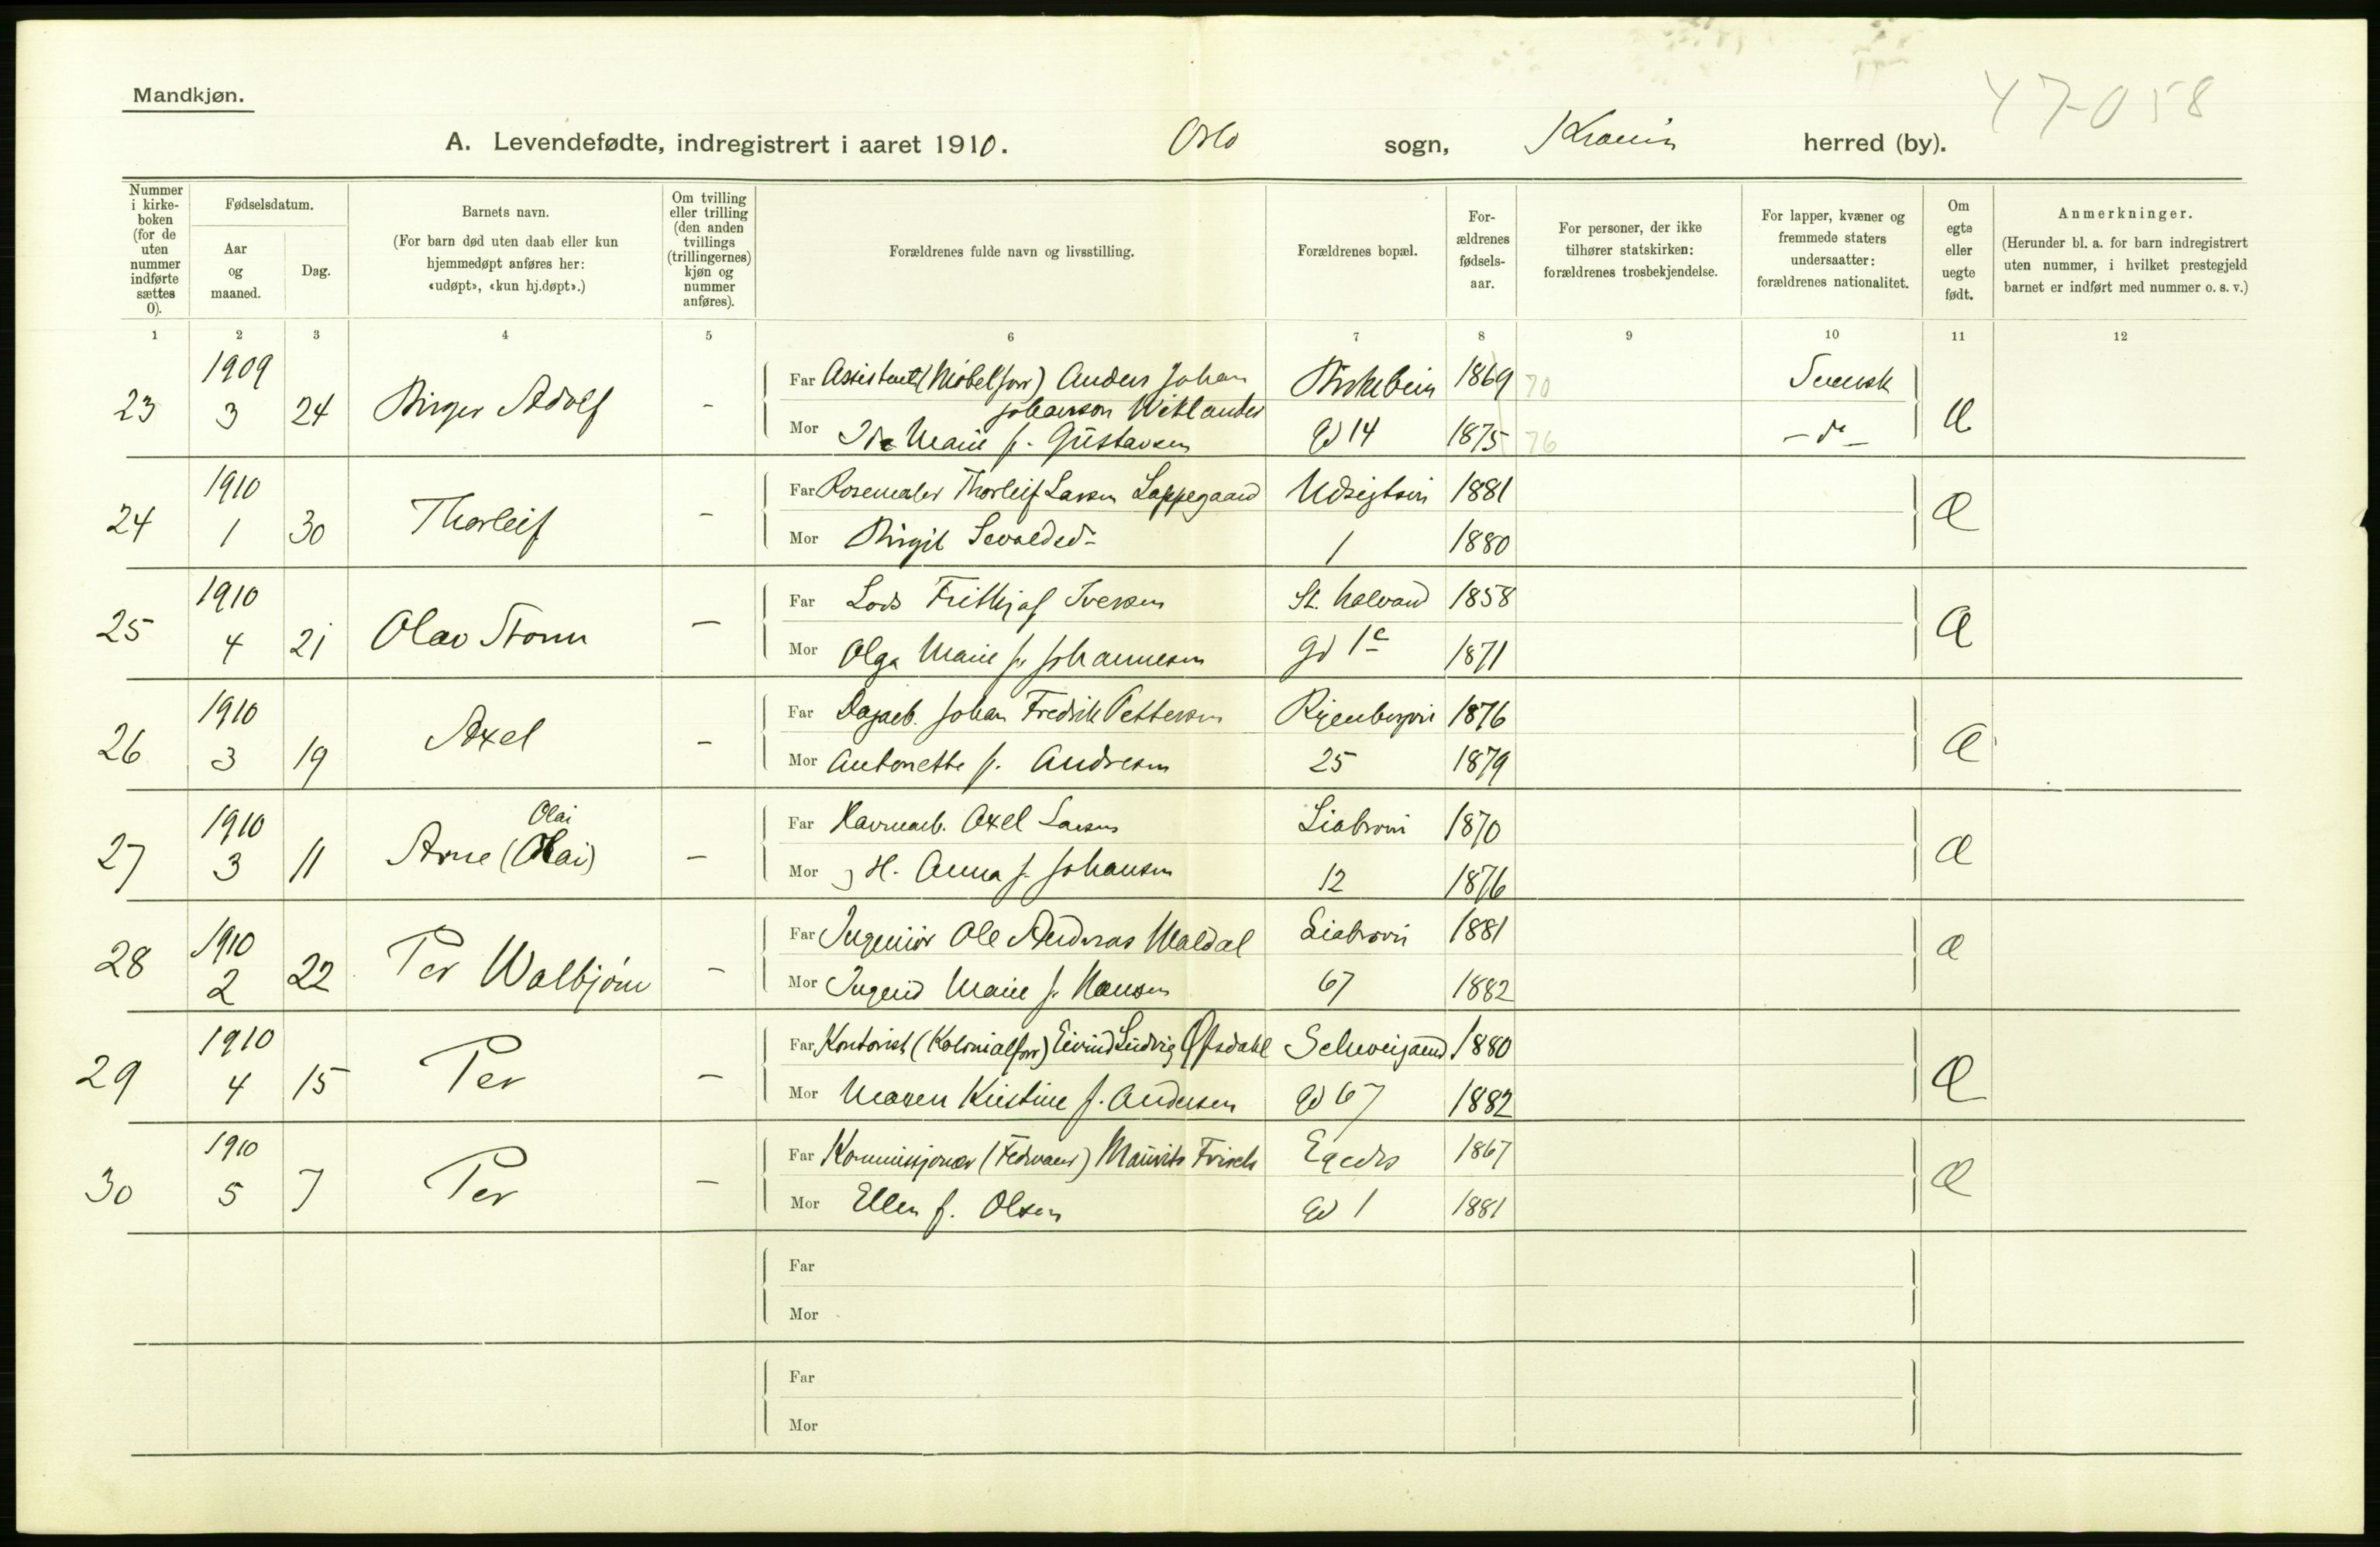 Mandkjøn.
47-058
A. Levendefødte, indregistrert i aaret 1910. Oslo sogn, Kra herred (by).
Nummer i kirke-boken (for de uten nummer indførte sættes 0).
Fødselsdatum.
Aar og maaned.
Dag.
Barnets navn.
(For barn død uten daab eller kun hjemmedøpt anføres her: «udøpt», «kun hj.døpt».)
Om tvilling eller trilling (den anden tvillings (trillingernes) kjøn og nummer anføres).
Forældrenes fulde navn og livsstilling.
Forældrenes bopæl.
For-ældrenes fødsels-aar.
For personer, der ikke tilhører statskirken: forældrenes trosbekjendelse.
For lapper, kvæner og fremmede staters undersaatter: forældrenes nationalitet.
Om egte eller uegte født.
Anmerkninger.
(Herunder bl. a. for barn indregistrert uten nummer, i hvilket prestegjeld barnet er indført med nummer o. s. v.)
1 2 3 4 5 6 7 8 9 10 11 12
23 1909 3 24 Birger Adolf -
Far Assistent (Møbelforr) Anders Johan Johanson Wiklander Birkebein 1869 70 Svensk
Mor Ida Marie f. Gustavsen gd 14 1875 76 - do - Æ
24 1910 1 30 Thorleif -
Far Rosemaler Thorleif Larsen Lappegaard Udsigtsvn 1881
Mor Birgit Sevaldsd. 1 1880 Æ
25 1910 4 21 Olav Storm -
Far Lods Frithjof Iversen St. Halvard 1858
Mor Olga Marie f. Johannesen gd 1c 1871 Æ
26 1910 3 19 Axel -
Far Dagarb. Johan Fredrik Pettersen Ryenbergvn 1876
Mor Antonette f. Andresen 25 1879 Æ
27 1910 3 11 Arne (Olai) Olai -
Far Havnearb. Axel Larsen Liabrovn 1870
Mor H. Anna f. Johansen 12 1876 Æ
28 1910 2 22 Per Walbjørn -
Far Ingeniør Ole Andreas Waldal Liabrovn 1881
Mor Ingrid Marie f. Hansen 67 1882 Æ
29 1910 4 15 Per -
Far Kontorist (Kolonialforr) Eivind Ludvig Ofsdahl Schweigaard 1880
Mor Maren Kristine f. Andersen gd 67 1882 Æ
30 1910 5 7 Per -
Far Kommissjonær (Fedevarer) Mauritz Frisch Egedes 1867
Mor Ellen f. Olsen gd 1 1881 Æ
Far
Mor
Far
Mor